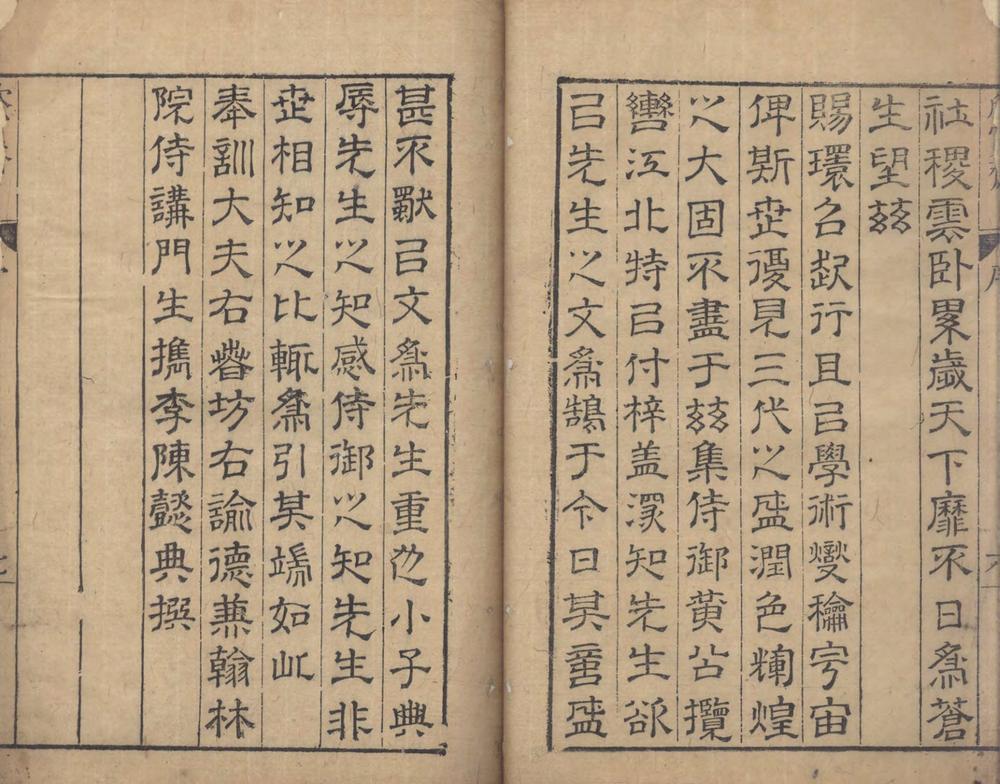 社稷雲卧累歲天下靡不日為蒼
生望兹
賜環召起行且㠯學術爕稐宇宙
俾斯世復見三代之盛潤色輝煌
之大固不盡于兹集侍御黄公攬
轡江北特㠯付梓盖深知先生欲
㠯先生之文為鵠于今日其意盛
甚不猒㠯文為先生重也小子典
辱先生之知感侍御之知先生非
世相知之比輒為引其端如此
奉訓大夫右春坊右諭德兼翰林
院侍講門生檇李陳懿典撰